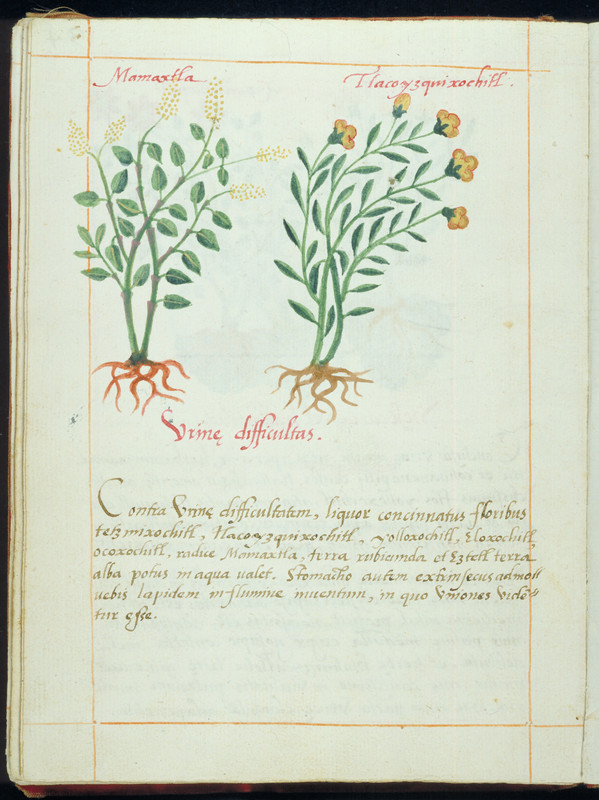 Mamaxtla
Tlacoyzquixochitl.
Vrinę difficultas.
Contra Vrinę difficultatem, liquor concinnatus floribus
tetzmixochitl, tlacoyzquixochitl, yolloxochitl, Eloxochitl
ocoxochitl, radice Mamaxtla, terra rubicunda et Eztetl terra
alba potus in aqua valet. Stomacho autem extrinsecus admo
uebis lapidem in flumine inuentum, in quo Vniones vidē=
tur esse.